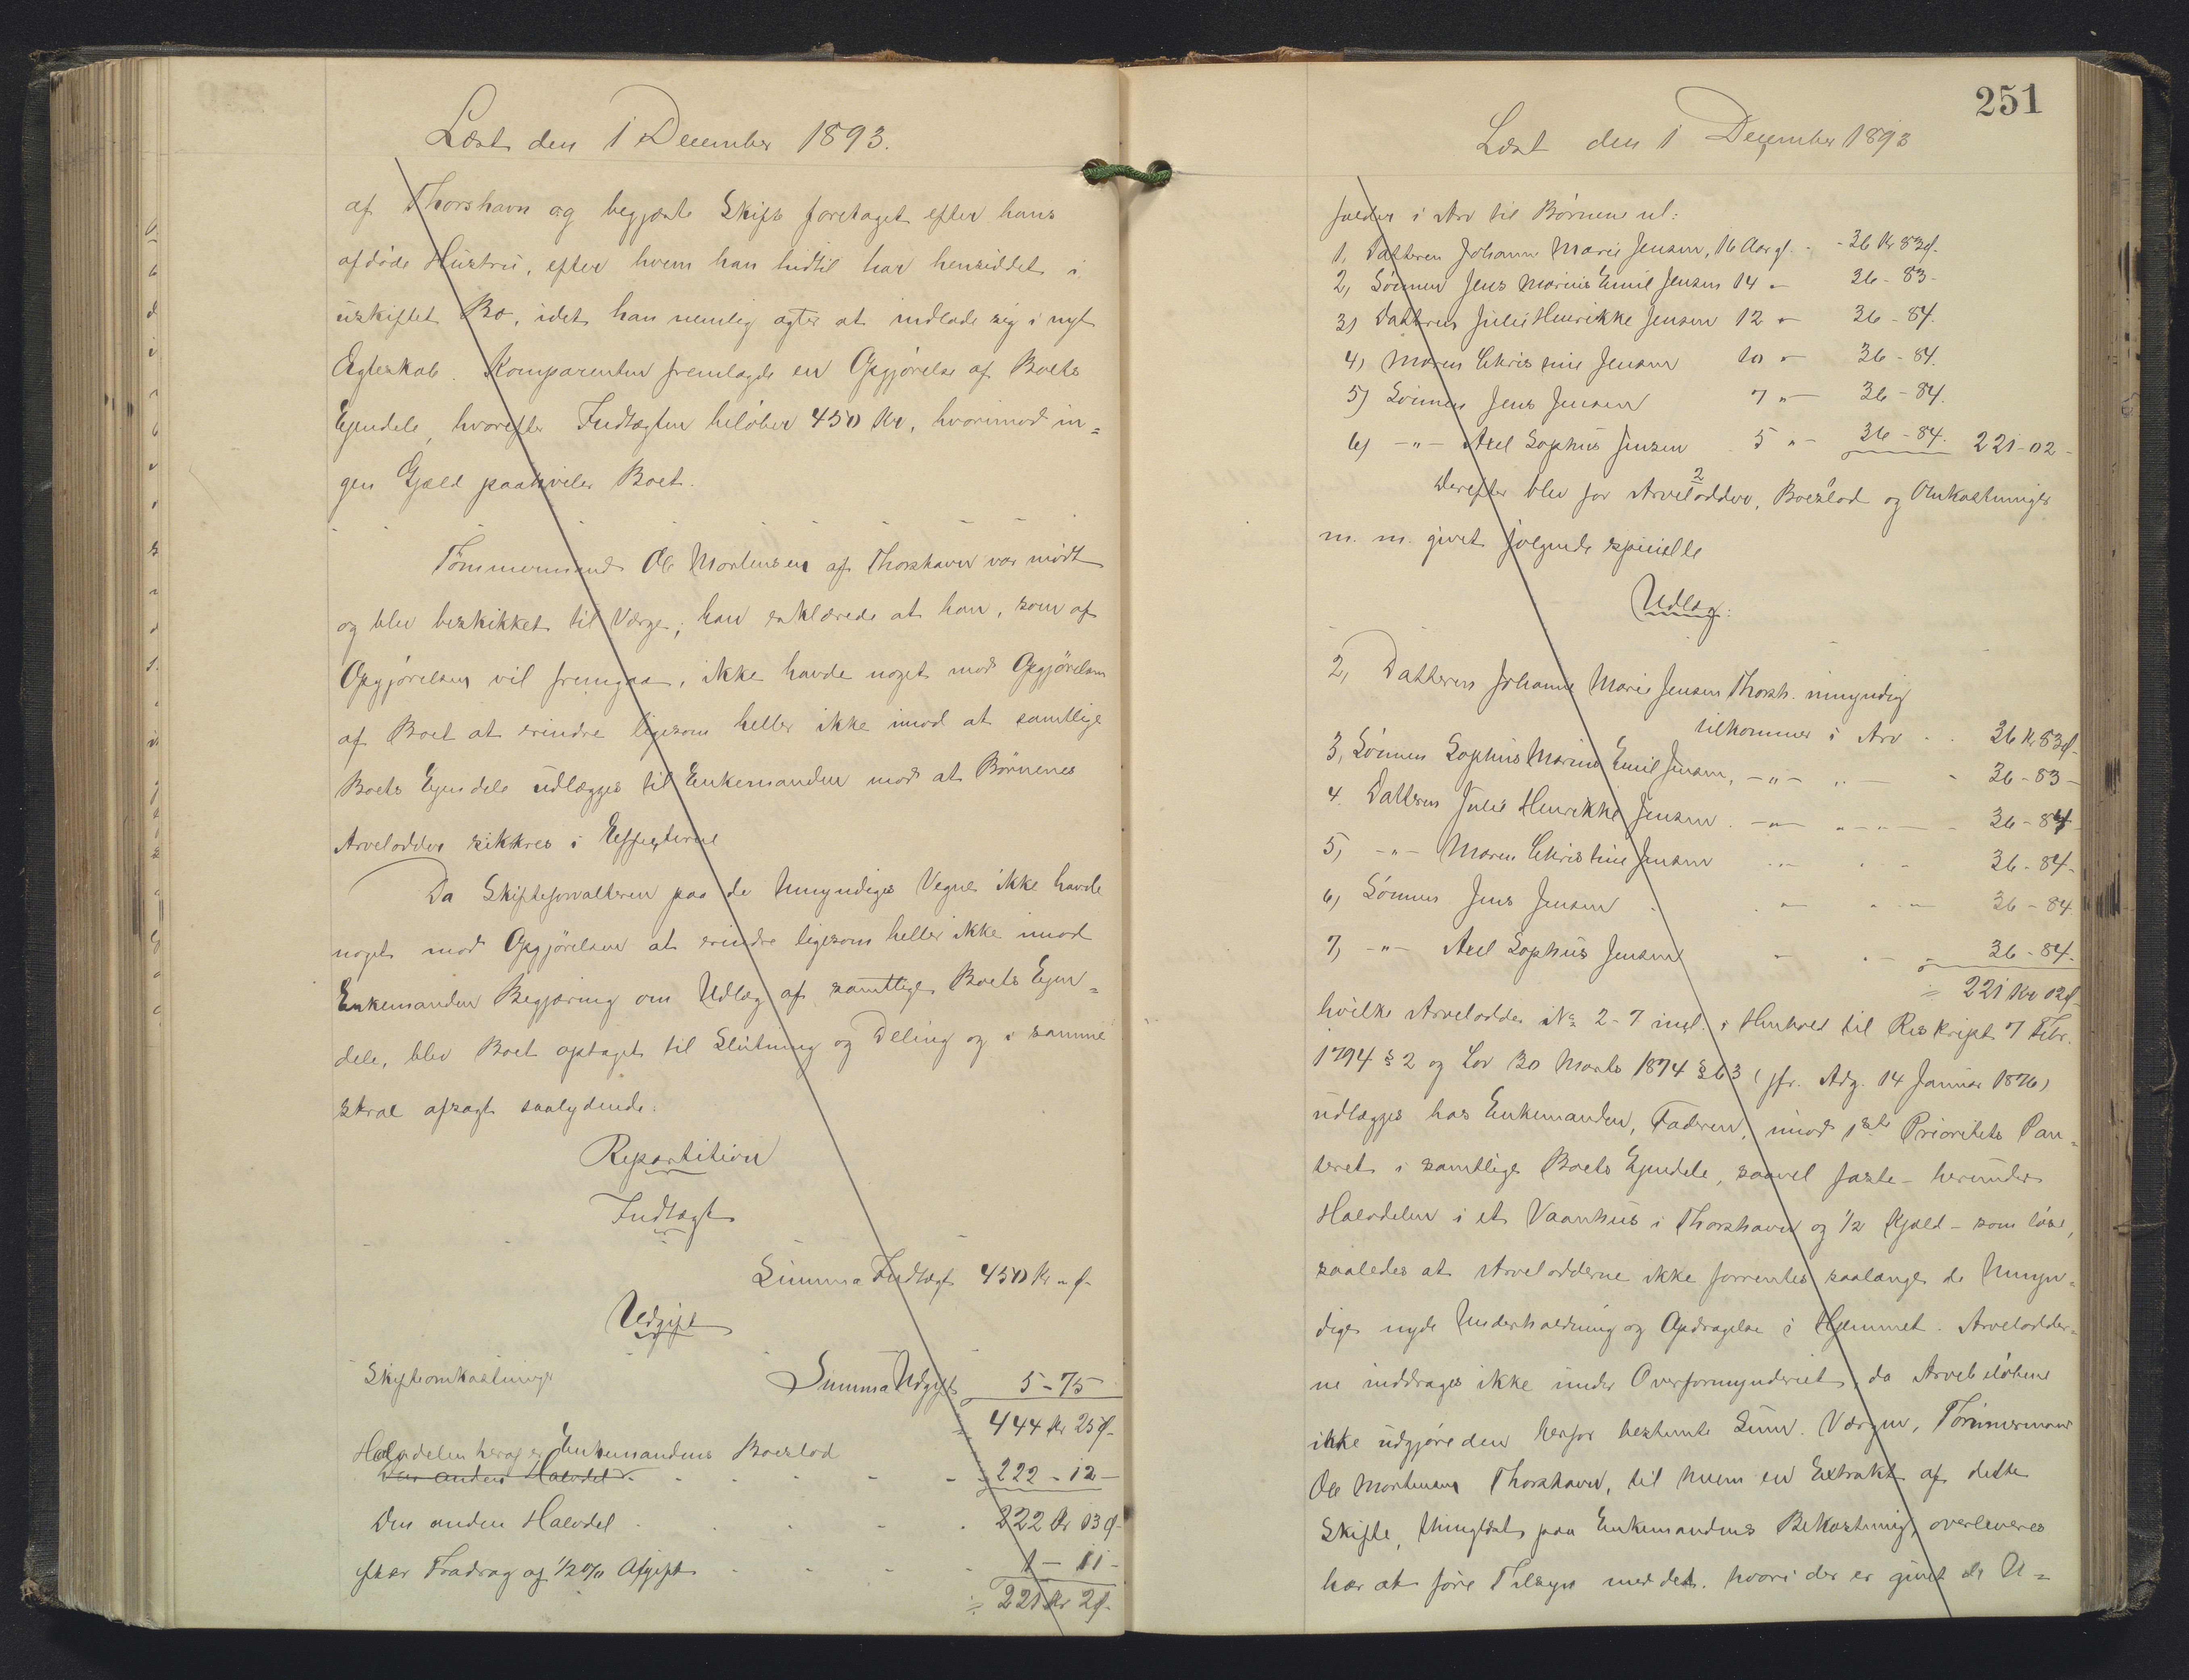 Læst den 1 December 1893.
af Thorshavn og begjærte Skifte foretaget efter hans
afdøde Hustru, efter hvem han hidtil har hensiddet i
uskiftet Bo, idet han nemlig agter at indlade sig i nyt
Ægteskab. Komparenten fremlagde en Opgjørelse af Boets
Ejendele, hvorefter Indtægten beløber 450 Kr, hvorimod in=
gen Gjæld paahviler Boet.
Tømmermand Ole Mortensen af Thorshavn var mødt
og blev beskikket til Værge; han erklærede at han, som af
Opgjørelsen vil fremgaa, ikke havde noget mod Opgjørelsen
af Boet at erindre ligesom heller ikke imod at samtlige
Boets Ejendele udlægges til Enkemanden mod at Børnenes
Arvelodder sikkres i Effecterne
Da Skifteforvalteren paa de Umyndiges Vegne ikke havde
noget mod Opgjørelsen at erindre ligesom heller ikke imod
Enkemanden Begjæring om Udlæg af samtlige Boets Ejen=
dele, blev Boet optaget til Slutning og Deling og i samme
skræl afsagt saalydende:
Repartition
Indtægt
Summa Indtægt 450 Kr " Ø.
Udgift
Skifteomkostninger Summa Udgift 5 - 75
444 Kr 25 Ø.
Halvdelen heraf er Enkemandens Boeslod
den anden Halvdel - - - - 222 - 12 -
Den anden Halvdel . . . . 222 Kr 13 Ø.
efter Fradrag af 1/2 % Afgift - - - - 1 - 11 -
= 221 Kr 2 Ø.
251
Læst den 1 December 1893
falder i Arv til Børnene nl:
1, Datteren Johanne Marie Jensen, 16 Aar gl. - - 36 Kr 83 Ø.
2, Sønnen Jens Marius Emil Jensen 14 " 36 - 83 -
3) Datteren Julie Henrikke Jensen 12 " 36 - 84.
4) Maren Christine Jensen 10 " 36 - 84.
5) Sønnen Jens Jensen 7 " - 36 - 84.
6) - " - Axel Sophus Jensen 5 " - 36 - 84. 221 - 02 -
Derefter blev for Arvelodder, Boeslod og Omkostninger
m. m. givet følgende specielle
Udlæg:
2, Datteren Johanne Marie Jensen Thorsh. umyndig
tilkommer i Arv . . 36 Kr 83 Ø.
3, Sønnen Sophus Marius Emil Jensen, - " - " - - 36 - 83 -
4. Datteren Julie Henrikke Jensen. - " - " - " - - 36 - 84
5, - " - Maren Christine Jensen 36 - 84 -
6, Sønnen Jens Jensen 36 - 84
7, - " - Axel Sophus Jensen 36 - 84.
= 221 Kr 02 Ø.
hvilke Arvelodder No 2-7 incl. i Henhold til Reskript 7 Febr.
1794 § 2 og Lov 30 Marts 1874 § 63 (jfr. Adg. 14 Januar 1876)
udlægges hos Enkemanden, Faderen, imod 1ste Prioritets Pan=
teret i samtlige Boets Ejendele, saavel faste - herunder
Halvdelen i et Vaanhus i Thorshavn og 1/2 Kjæld - som løse,
saaledes at Arvelodderne ikke forrentes saalænge de Umyn=
dige nyde Underholdning og Opdragelse i Hjemmet. Arvelodder=
ne inddrages ikke under Overformynderiet, da Arvebeløbene
ikke udgjøre den herfor bestemte Sum. Værgen, Tømmermand
Ole Mortensen Thorshavn, til hvem en Extrakt af dette
Skifte, thinglæst paa Enkemandens Bekostning, overleveres
har at føre Tilsyn med det, hvori der er givet de U=